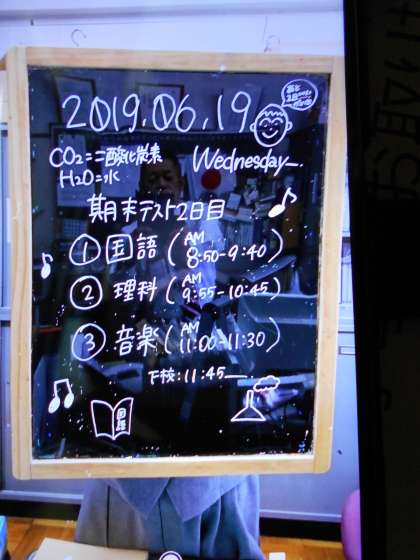 2019.06.19
CO2=二酸化炭素
Wednesday
H2O=水
期末テスト2日目
① 国語 (AM 8:50-9:40)
② 理科 (AM 9:55-10:45)
③ 音楽 (AM 11:00-11:30)
下校:11:45
国語